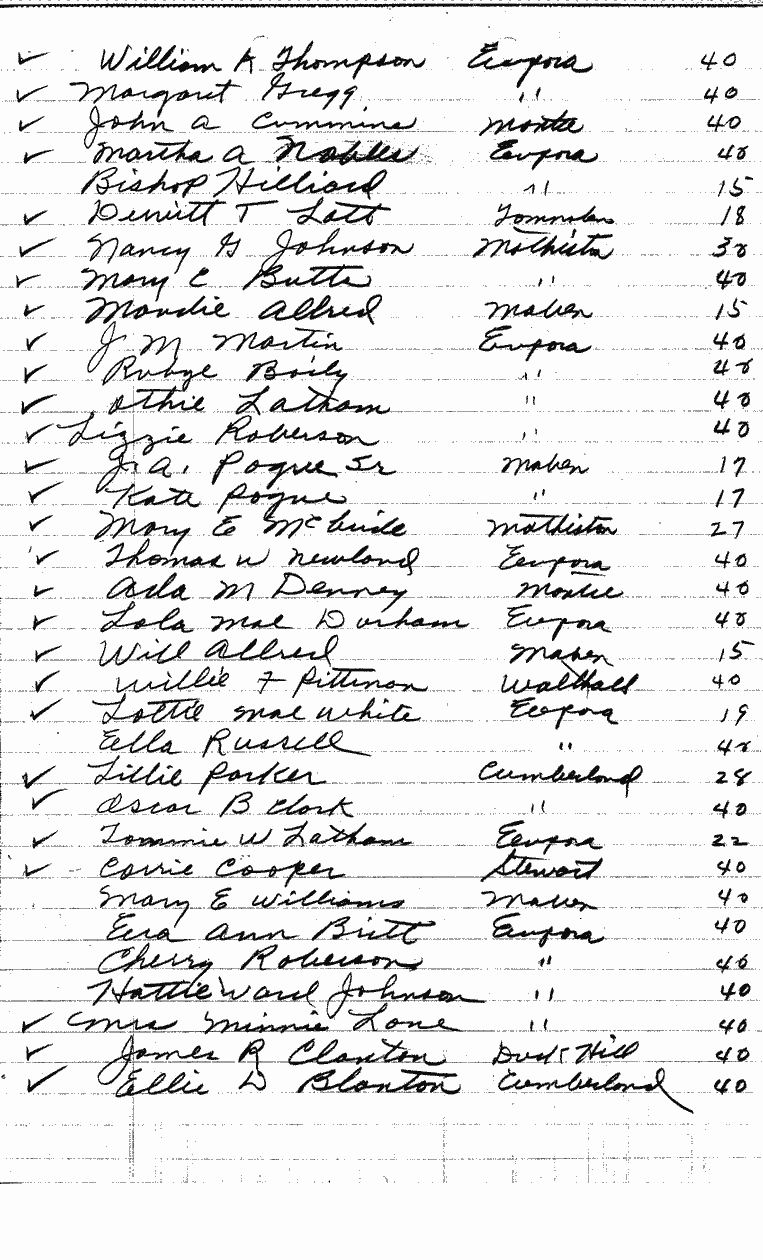 ✓ William K Thompson Eupora 40
✓ Margaret Gregg " 40
✓ John A Cummins Montee 40
✓ Martha A Nobles Eupora 40
Bishop Hilliard " 15
✓ Dewitt T Lott Tomnolen 18
✓ Nancy G Johnson Mathiston 30
✓ Mary E Butts " 40
✓ Maudie Allred Maben 15
✓ J M Martin Eupora 40
✓ Boily " 40
✓ Othie Latham " 40
✓ Lizzie Roberson " 40
✓ J. A. Pogue Sr Maben 17
✓ Kate Pogue " 17
✓ Mary E McBride Mathiston 27
✓ Thomas W Newland Eupora 40
✓ Ada M Denney Montee 40
✓ Lola Mae Durham Eupora 40
✓ Will Allred Maben 15
✓ Willie F Pittman Walthall 40
✓ Lottie Mae White Eupora 19
Ella Russell " 40
✓ Lillie Parker Cumberland 28
✓ Oscar B Clark " 40
✓ Tommie W Latham Eupora 22
✓ Carrie Cooper Stewart 40
Mary E Williams Maben 40
Eura Ann Britt Eupora 40
Cherry Roberson " 40
Hattie Ward Johnson " 40
✓ Mrs Minnie Lane " 40
✓ James R Clanton Duck Hill 40
✓ Ellie D Blanton Cumberland 40